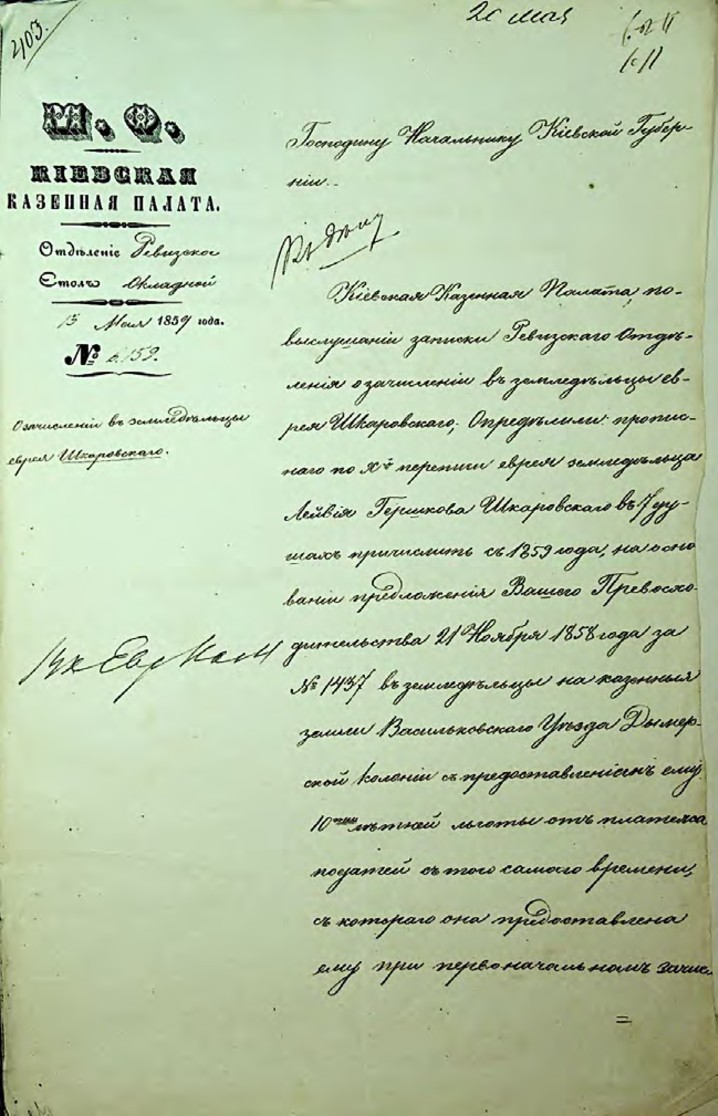 403.
20 мая
М. Ф.
КІЕВСКАЯ
КАЗЕННАЯ ПАЛАТА.
Отдѣленіе Ревизское
Столъ Окладной
13 Мая 1859 года.
№ 6159.
О зачисленіи въ земледѣльцы
еврея Шкаровскаго.
Господину Начальнику Кіевской Губер-
ніи.
Къ дѣлу
Кіевская Казенная Палата, по
выслушаніи записки Ревизскаго Отдѣ-
ленія о зачисленіи въ земледѣльцы ев-
рея Шкаровскаго, Опредѣлили: прописн-
наго по Хй переписи еврея земледѣльца
Лейвія Гершкова Шкаровскаго въ 7 ду-
шахъ причислить съ 1859 года, на осно-
ваніи предложенія Вашего Превосхо-
дительства 21 Ноября 1858 года за
№ 1437 въ земледѣльцы на казенныя
земли Васильковскаго Уѣзда Дымер-
ской колоніи съ предоставленіемъ ему
10 лѣтней льготы отъ платежа
податей съ того самого времени,
съ котораго она предоставлена
ему при первоначальномъ зачис-